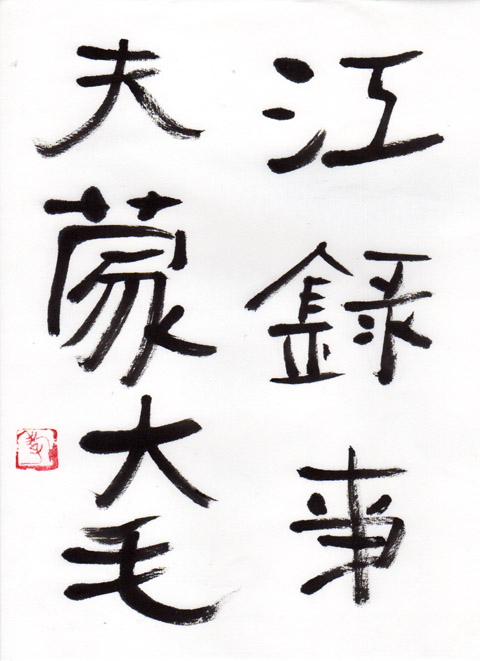 江録事
夫蒙大毛